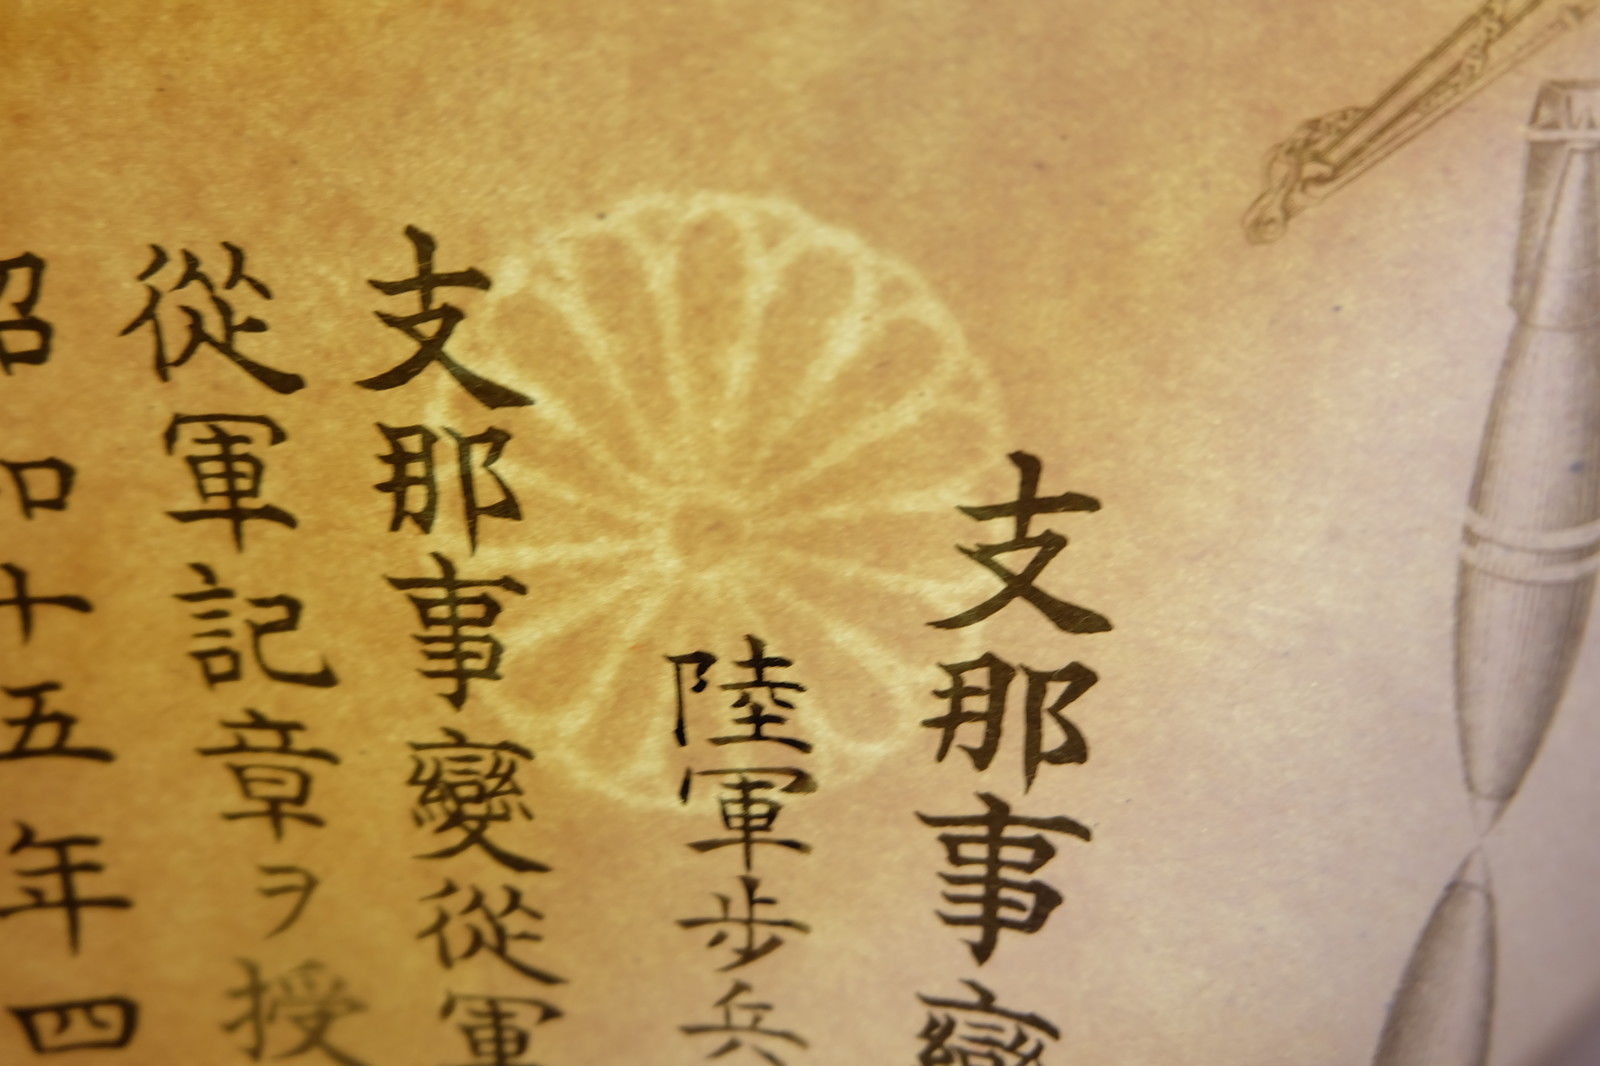 支那事變
陸軍步兵
支那事變從軍
從軍記章ヲ授
昭和十五年四